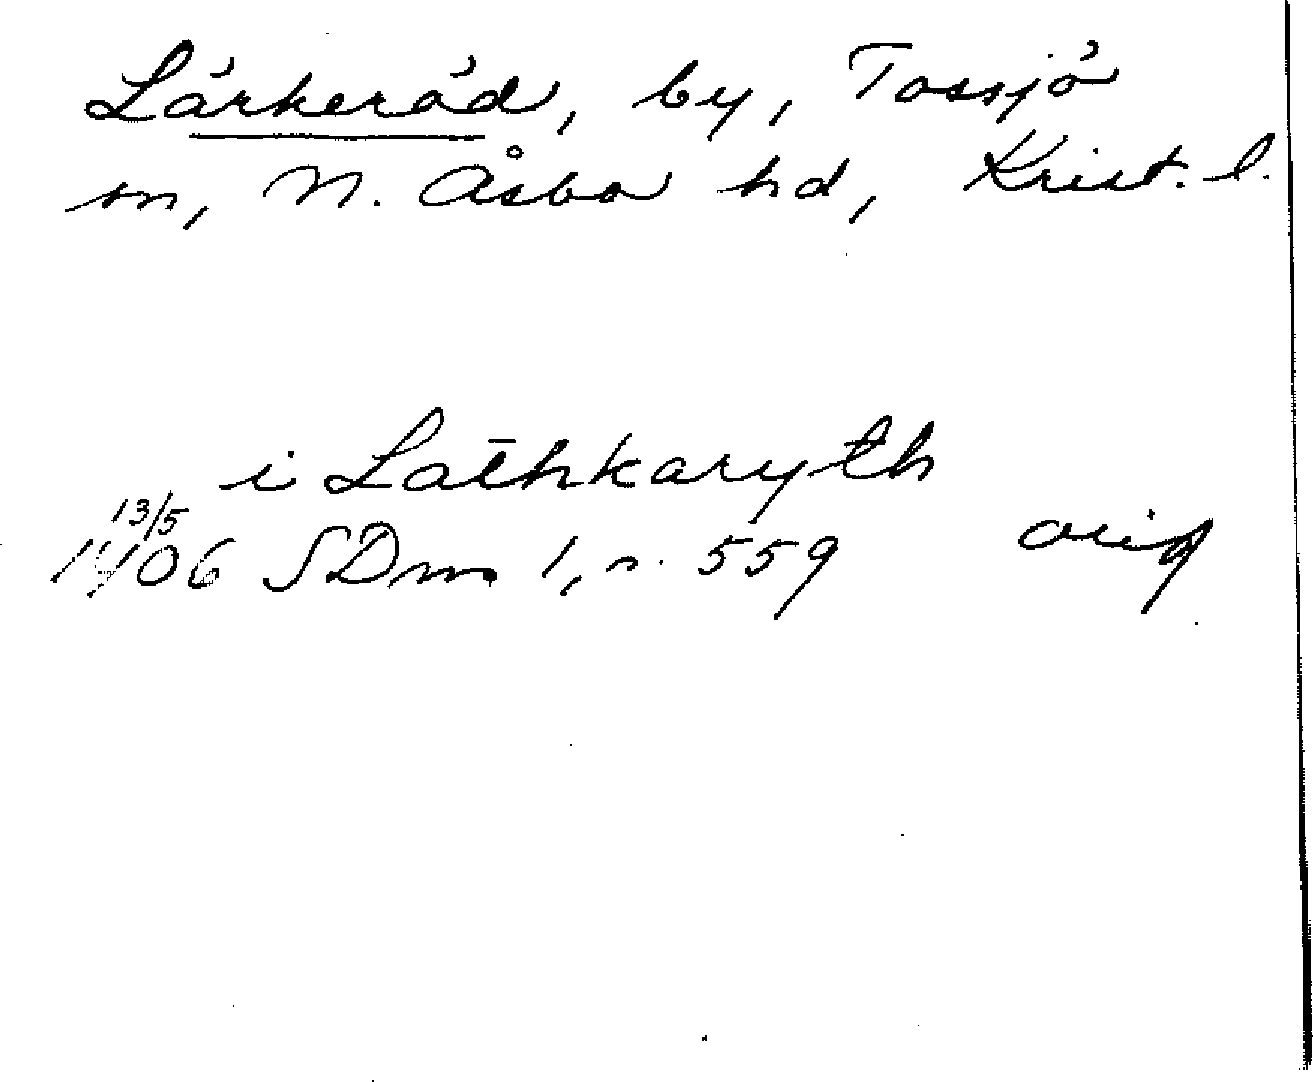 Lärkeröd, by, Tossjö
sn, N. Åsbo hd, Krist. l.
i Lathkaryth
13/5
1406 SDns 1, s. 559 orig